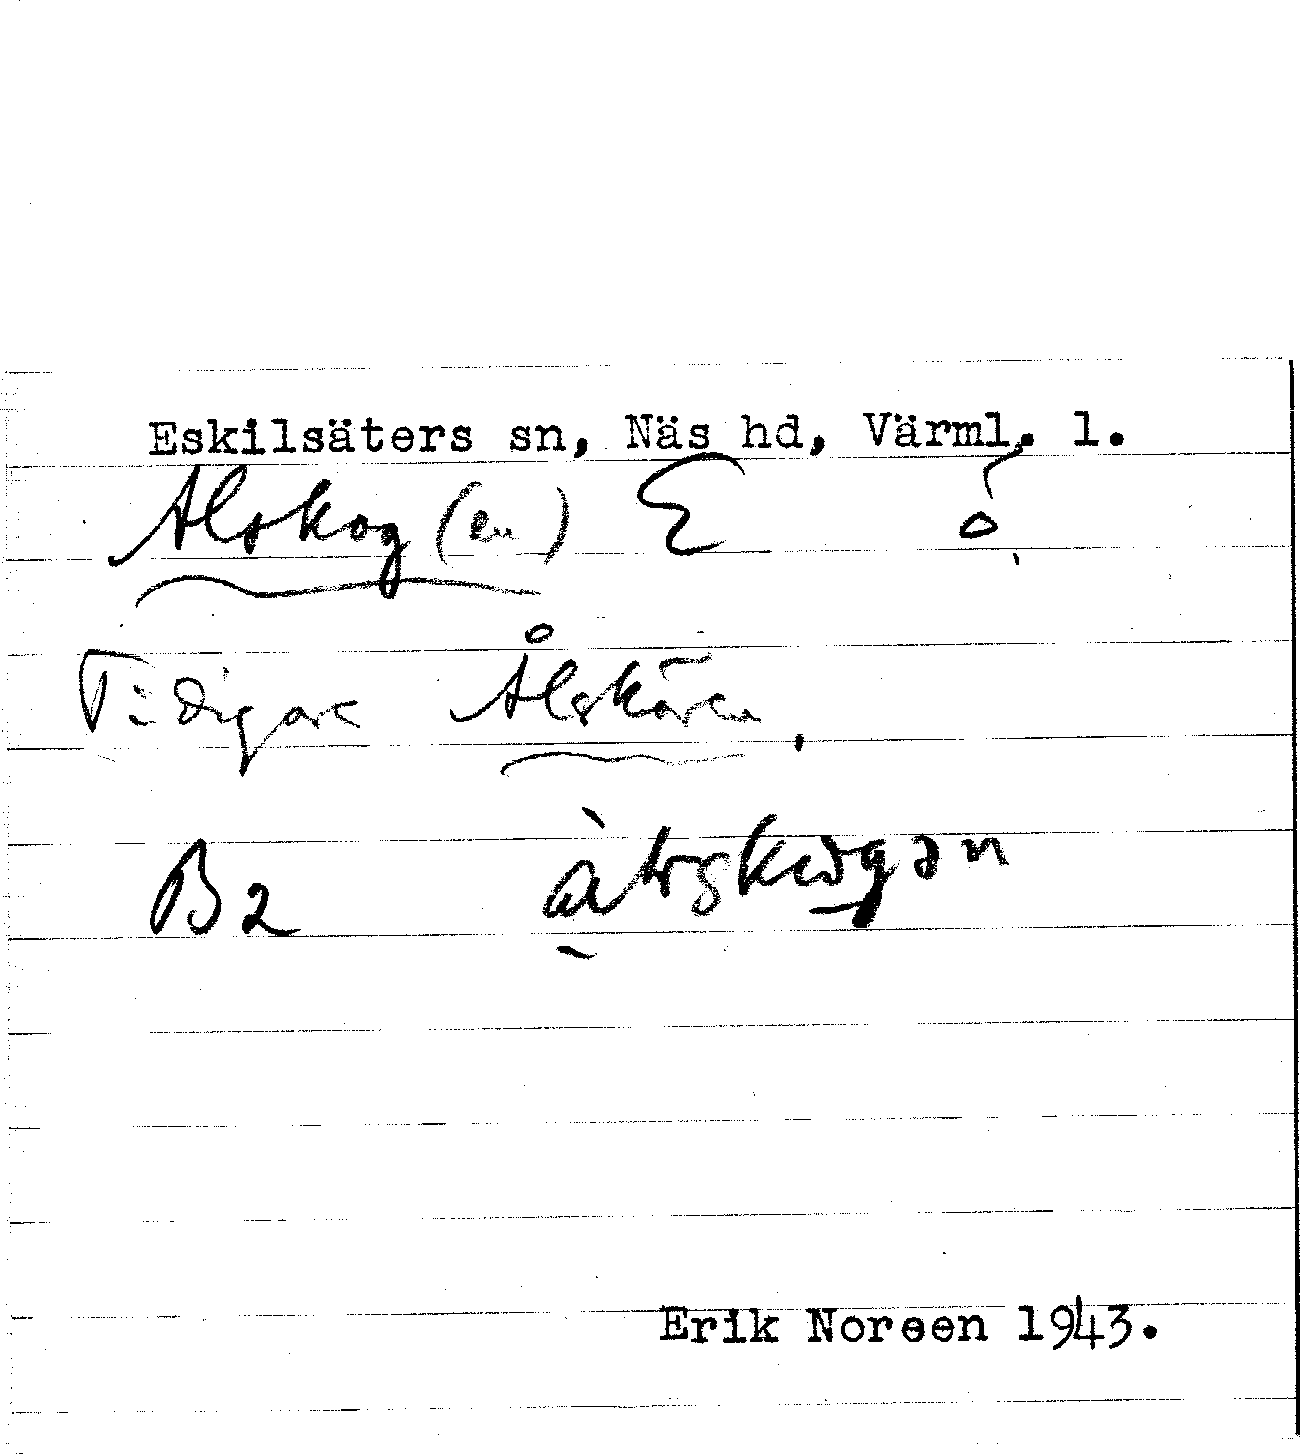 Eskilsäters sn, Näs hd, Värml. l.
Alskog (en) E ö.
Tidigare Ålskären.
B2
Erik Noreen 1943.